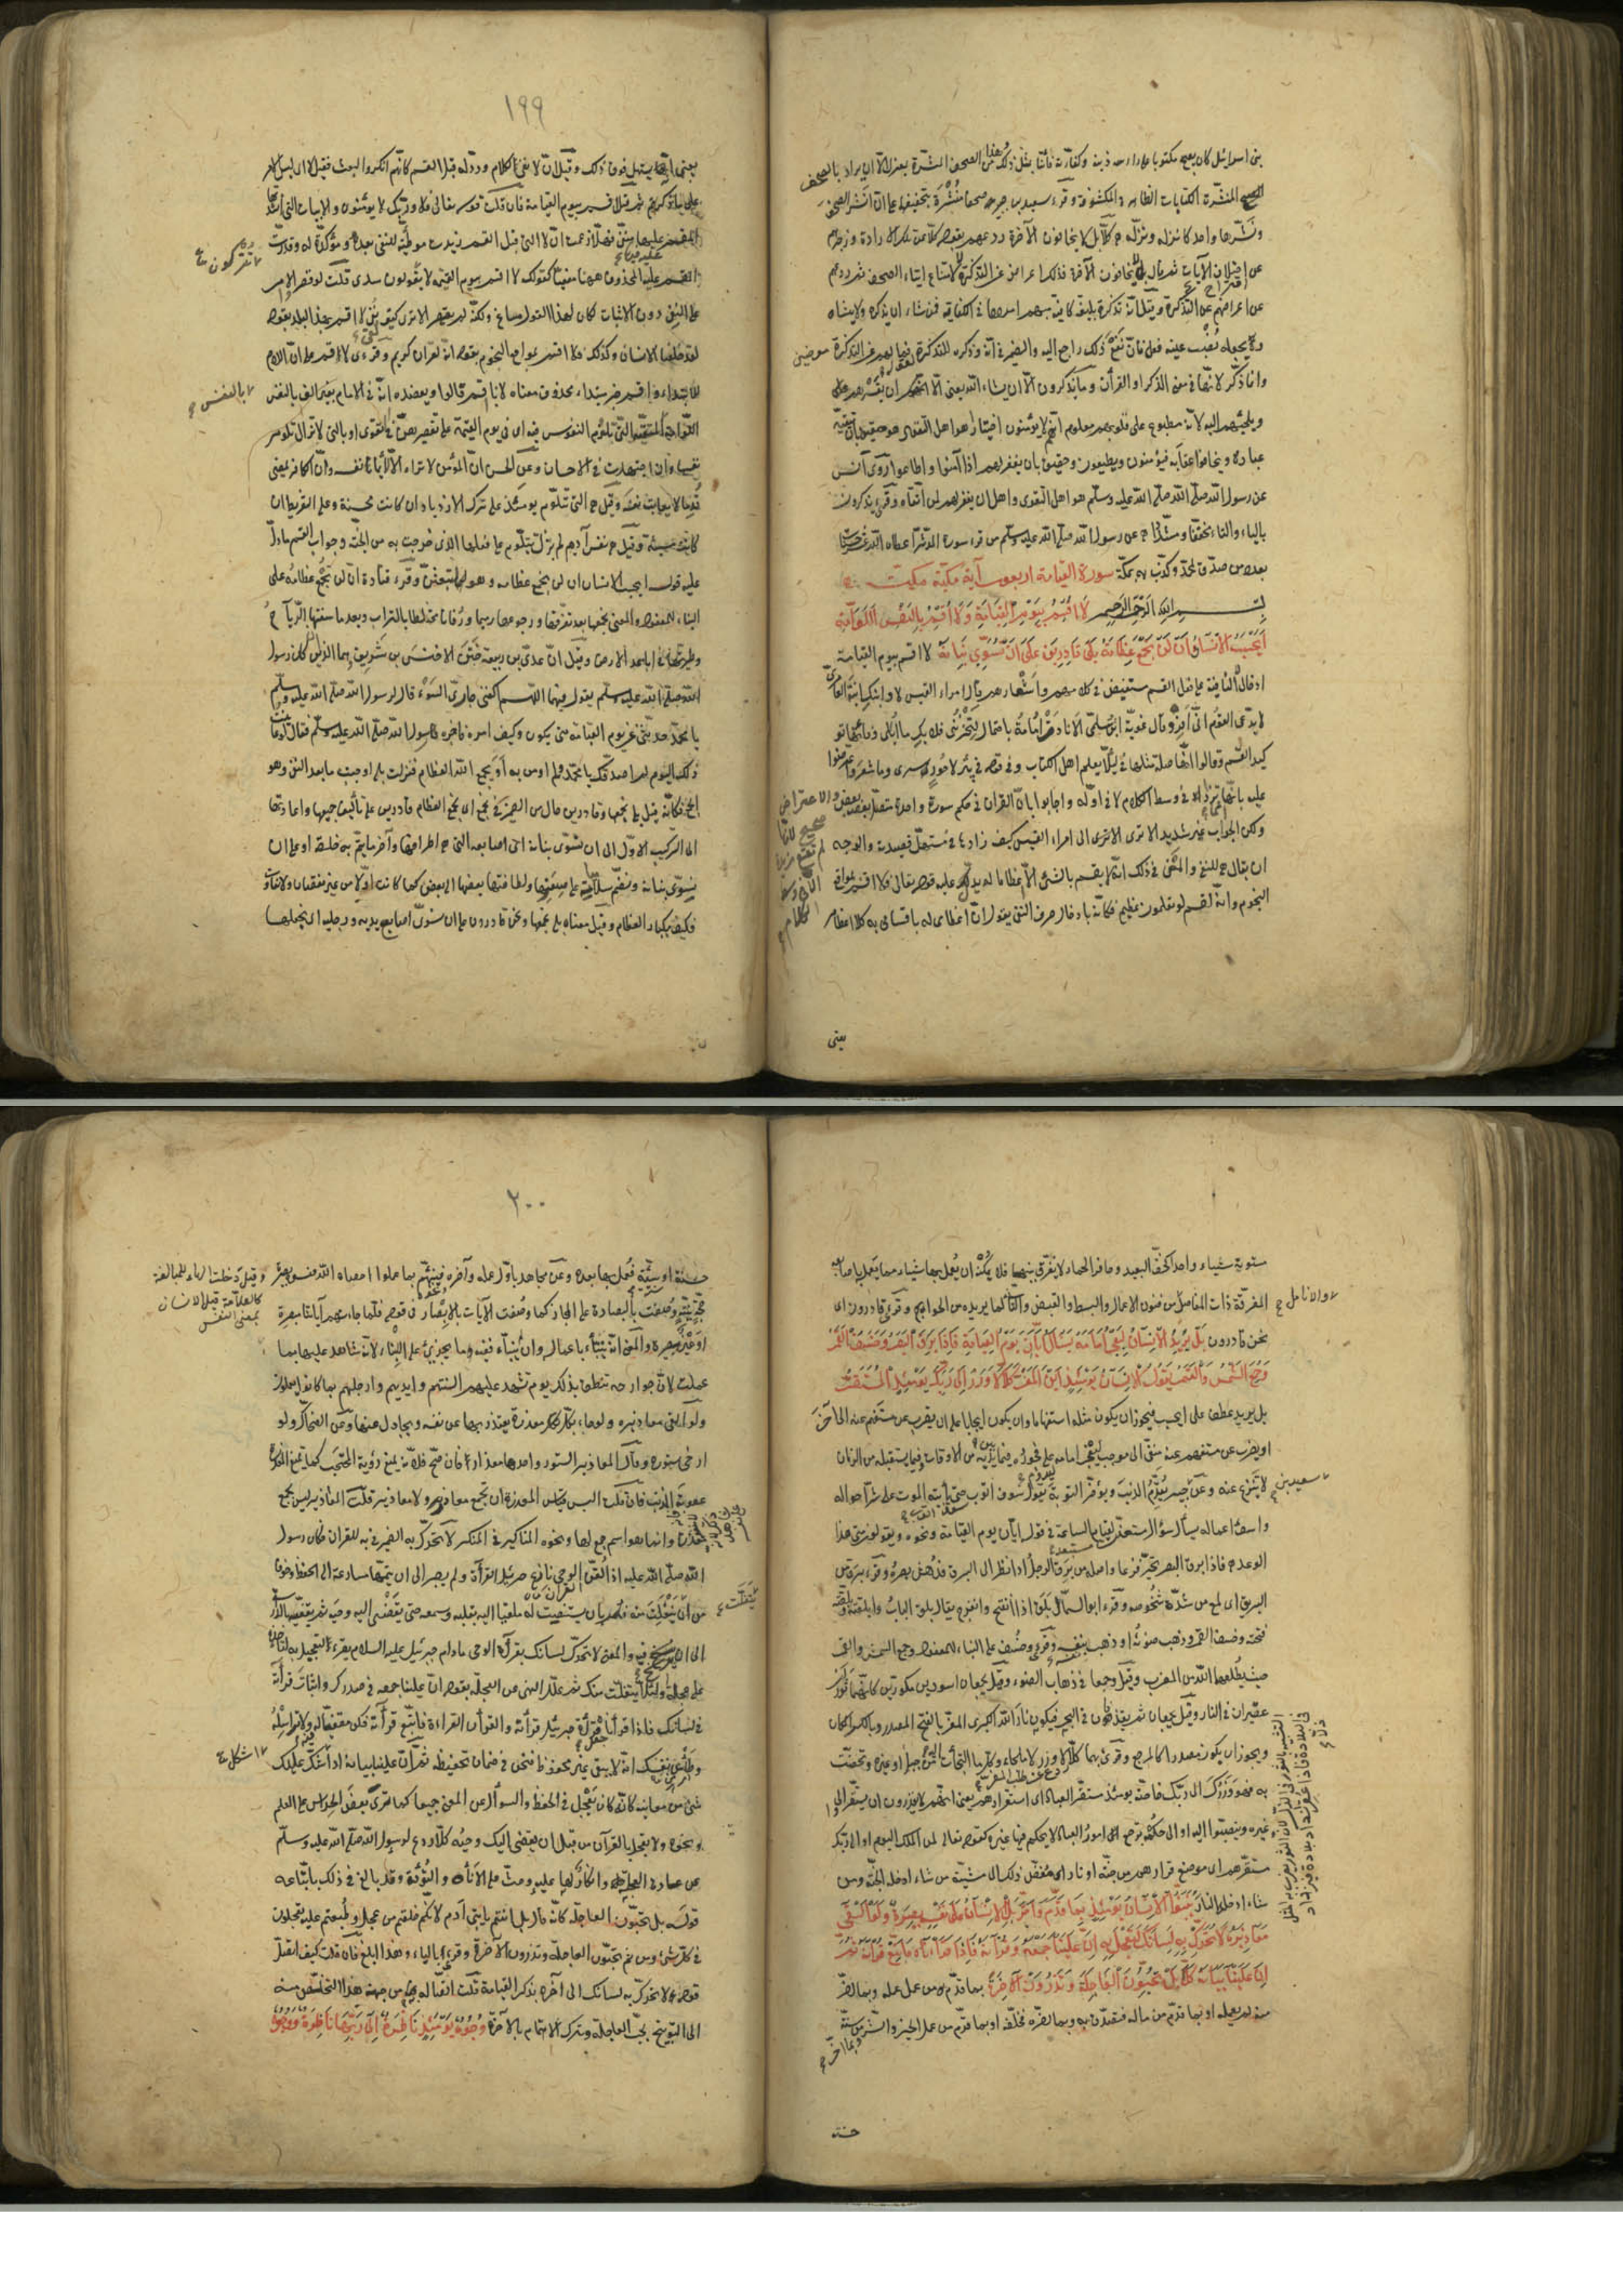 بنى اسرائيل كان يصبح مكتوبا على راسه ذنبه وكفارته فأتنا بمثل ذلك وهذا من الصحف المنشرة بمعزل الا ان يراد بالصحف
المنشرة الكتابات الظاهرة المكشوفة وقرء سعيد بن جبير صحفا منشرة بتخفيفهما على ان انشر الصحف
ونشرها واحد كانزله ونزله كلا بل لا يخافون الآخرة ردعهم بقوله كلا عن تلك الارادة وزجرهم
عن اقتراح الآيات ثم قال بل لا يخافون الآخرة فلذلك اعرضوا عن التذكرة لا لامتناع ايتاء الصحف ثم ردعهم
عن اعراضهم عن التذكرة وقال انه تذكرة بليغة كافية مبهم امرها في الكفاية فمن شاء ان يذكره ولا ينساه
ويجعله نصب عينه فعل فان نفع ذلك راجع اليه والضمير في انه وذكره للتذكرة في فما لهم عن التذكرة معرضين
وانما ذكر لانها في معنى الذكر او القرآن وما يذكرون الا ان يشاء الله يعنى الا ان يقسرهم على
ويلجئهم اليه لانه مطبوع على قلوبهم معلوم انهم لا يؤمنون اختيارا هو اهل التقوى هو حقيق بان يتقيه
عباده ويخافوا عقابه فيؤمنون ويطيعون وحقيق بان يغفر لهم اذا آمنوا واطاعوا روى انس
عن رسول الله صلى الله عليه وسلم هو اهل التقوى واهل ان يغفر لمن اتقاه وقرئ يذكرون
بالياء والتاء مخففا ومشددا عن رسول الله صلى الله عليه وسلم من قرء سورة المدثر اعطاه الله عشر حسنات
بعدد من صدق بمحمد وكذب به بمكة سورة القيامة اربعون آية مكية
بسم الله الرحمن الرحيم لا اقسم بيوم القيامة ولا اقسم بالنفس اللوامة
ايحسب الانسان ان لن نجمع عظامه بلى قادرين على ان نسوى بنانه لا اقسم بيوم القيامة
ادخال لا النافية على فعل القسم مستفيض في كلامهم واشعارهم قال امرء القيس لا وابيك ابنة العامرى
لا يدعى القوم انى افر وقال غوية ابن سلمى الا نادت امامة باحتمال لتحزننى فلا بك ما ابالى وفائدتها تو
كيد القسم وقالوا انها صلة مثلها في لئلا يعلم اهل الكتاب وفى قوله في بئر لا حور سرى وما شعر واعترضوا
عليه بانها تزاد في وسط الكلام لا في اوله واجابوا بان القرآن في حكم سورة واحدة متصل بعضه ببعض والاعتراض
صحيح لانها لم تقع مزيدة الا في وسط الكلام
ولكن الجواب غير سديد الا ترى الى امرء القيس كيف زادها في مستهل قصيدته والوجه
ان يقال هى للنفى والمعنى في ذلك انه لا يقسم بالشئ الا اعظاما له يدلك عليه قوله تعالى فلا اقسم بمواقع
النجوم وانه لقسم لو تعلمون عظيم فكانه بادخال حرف النفى يقول ان اعظامى له باقسامى به كلا اعظام
يعنى
١٩٩
يعنى انه يستاهل فوق ذلك وقيل ان لا نفى لكلام ورد له قبل القسم كانهم انكروا البعث فقيل لا اى ليس الامر
على ما ذكرتم ثم قيل اقسم بيوم القيامة فان قلت قوله تعالى فلا وربك لا يؤمنون والابيات التى انشدتها
المقسم عليها منفى فهلا زعمت ان لا التى قبل القسم زيدت موطئة للنفى بعده ومؤكدة له وقدرت
المقسم عليه المحذوف ههنا منفيا كقولك لا اقسم بيوم القيمة لا تتركون سدى قلت لو قصر الامر
تتركون
على النفى دون الاثبات لكان لهذا القول مساغ ولكنه لم يقصر الا ترى كيف لقى لا اقسم بهذا البلد بقوله
لقد خلقنا الانسان وكذلك فلا اقسم بمواقع النجوم بقوله انه لقرآن كريم وقرئ لاقسم على ان اللام
للابتداء واقسم خبر مبتداء محذوف معناه لانا اقسم قالوا ويعضده انه في الامام بغير الف بالنفس
بالنفس
اللوامة المتقية التى تلوم النفوس فيه اى في يوم القيمة على تقصيرهن في التقوى او بالتى لا تزال تلوم
نفسها وان اجتهدت في الاحسان وعن الحسن ان المؤمن لا تراه الا لائما نفسه وان الكافر يمضى
قدما لا يعاتب نفسه وقيل هى التى تتلوم يومئذ على ترك الازدياد ان كانت محسنة وعلى التفريط ان
كانت مسيئة وقيل هى نفس آدم لم تزل تتلوم على فعلها الذى خرجت به من الجنة وجواب القسم ما دل
عليه قوله ايحسب الانسان ان لن نجمع عظامه وهو لتبعثن وقرء قتادة ان لن تجمع عظامه على
البناء للمفعول والمعنى نجمعها بعد تفرقها ورجوعها رميما ورفاتا مختلطا بالتراب وبعد ما سفتها الرياح
وطيرتها في اباعد الارض وقيل ان عدى بن ربيعة ختن الاخنس بن شريق وهما اللذان كان رسول
الله صلى الله عليه وسلم يقول فيهما اللهم اكفنى جارى السوء قال لرسول الله صلى الله عليه وسلم
يا محمد حدثنى عن يوم القيامة متى يكون وكيف امره فاخبره رسول الله صلى الله عليه وسلم فقال لو عاينت
ذلك اليوم لم اصدقك يا محمد ولم اومن به او يجمع الله العظام فنزلت بلى اوجبت ما بعد النفى وهو
الجمع فكانه قيل بلى نجمعها وقادرين حال من الضمير في نجمع اى نجمع العظام قادرين على تأليف جميعها واعادتها
الى التركيب الاول الى ان نسوى بنانه اى اصابعه التى هى اطرافها وآخر ما يتم به خلقه او على ان
نسوى بنانه ونضم سلامياته على صغرها ولطافتها بعضها الى بعض كما كانت اولا من غير نقصان ولا تفاوت
فكيف بكبار العظام وقيل معناه بلى نجمعها ونحن قادرون على ان نسوى اصابع يديه ورجليه اى نجعلها
مستوية شيئا واحدا كخف البعير وحافر الحمار لا نفرق بينها فلا يمكنه ان يعمل بها شيئا مما يعمل باصابعه
المفرقة ذات المفاصل من فنون الاعمال والبسط والقبض والتأتى لما يريد من الحوائج وقرئ قادرون اى
والانامل
نحن قادرون بل يريد الانسان ليفجر امامه يسأل ايان يوم القيامة فاذا برق البصر وخسف القمر
وجمع الشمس والقمر يقول الانسان يومئذ اين المفر كلا لا وزر الى ربك يومئذ المستقر
بل يريد عطف على ايحسب فيجوز ان يكون مثله استفهاما وان يكون ايجابا على ان يضرب عن مستفهم عنه الى آخر
او يضرب عن مستفهم عنه الى موجب ليفجر امامه ليدوم على فجوره فيما بين يديه من الاوقات وفيما يستقبله من الزمان
لا ينزع عنه وعن سعيد بن جبير يقدم الذنب ويؤخر التوبة يقول سوف اتوب حتى يأتيه الموت على شر احواله
واسوء اعماله يسأل سؤال متعنت مستبعد لقيام الساعة في قوله ايان يوم القيامة ونحوه ويقولون متى هذا
الوعد فاذا برق البصر تحير فزعا واصله من برق الرجل اذا نظر الى البرق فدهش بصره وقرء برق من
البريق اى لمع من شدة شخوصه وقرء ابو السمال بلق اذا انفتح وانفرج يقال بلق الباب وابلقته وبلقته
فتحته وخسف القمر وذهب ضوئه او ذهب بنفسه وقرئ وخسف على البناء للمفعول وجمع الشمس والقمر
حيث يطلعهما الله من المغرب وقيل وجمعا في ذهاب الضوء وقيل يجمعان اسودين مكورين كانهما ثوران
عقيران في النار وقيل يجمعان ثم يقذفان في البحر فيكون نار الله الكبرى المفر بالفتح المصدر وبالكسر المكان
ويجوز ان يكون مصدرا كالمرجع وقرئ بهما كلا ردع عن طلب المفر لا وزر لا ملجاء وكل ما التجأت اليه من جبل او غيره وتحصنت
به فهو وزرك الى ربك خاصة يومئذ مستقر العباد اى استقرارهم يعنى انهم لا يقدرون ان يستقروا الى
غيره وينصبوا اليه او الى حكمه ترجع امور العباد لا يحكم فيها غيره كقوله تعالى لمن الملك اليوم او الى ربك
مستقرهم اى موضع قرارهم من جنة او نار اى مفوض ذلك الى مشيته من شاء ادخله الجنة ومن
شاء ادخله النار ينبؤ الانسان يومئذ بما قدم واخر بل الانسان على نفسه بصيرة ولو القى
معاذيره لا تحرك به لسانك لتعجل به ان علينا جمعه وقرآنه فاذا قرأناه فاتبع قرآنه ثم
ان علينا بيانه كلا بل تحبون العاجلة وتذرون الآخرة بما قدم من عمل عمله وبما اخر
منه لم يعمله او بما قدم من ماله فتصدق به وبما اخره فخلفه او بما قدم من عمل الخير والشر وبما اخر من سنة
حسنة
٢٠٠
حسنة او سيئة فعمل بها بعده وعن مجاهد باول عمله وآخره ونحوه فينبئهم بما عملوا احصاه الله ونسوه بصيرة
وقيل دخلت الهاء للمبالغة كالعلامة وقيل الانسان بمعنى النفس
حجة بينة وصفت بالبصارة على المجاز كما وصفت الآيات بالابصار في قوله فلما جاءتهم آياتنا مبصرة
او عين بصيرة والمعنى انه ينبأ باعماله وان لم ينبأ ففيه ما يجزئ عن الانباء لانه شاهد عليها بما
عملت لان جوارحه تنطق بذلك يوم تشهد عليهم السنتهم وايديهم وارجلهم بما كانوا يعملون
ولو القى معاذيره ولو جاء بكل معذرة يعتذر بها عن نفسه ويجادل عنها وعن الضحاك ولو
ارخى ستوره وقال المعاذير الستور واحدها معذار فان صح فلانه يمنع رؤية المحتجب كما تمنع المعذرة
عقوبة المذنب فان قلت اليس قياس المعذرة ان تجمع معاذر لا معاذير قلت المعاذير ليس بجمع
معذرة وانما هو اسم جمع لها ونحوه المناكير في المنكر لا تحرك به الضمير في به للقرآن فكان رسول
الله صلى الله عليه اذا لقن الوحى نازع جبرئيل القراءة ولم يصبر الى ان يتمها مسارعة الى الحفظ وخوفا
من ان يتفلت منه فامر بان يستنصت له ملقيا اليه بقلبه وسمعه حتى يقضى اليه وحيه ثم يقفيه بالدراسة
الى ان يرسخ فيه والمعنى لا تحرك لسانك بقراءة الوحى ما دام جبرئيل عليه السلام يقرء لتعجل به لتاخذه
على عجلة ولئلا يتفلت منك ثم علل النهى عن العجلة بقوله ان علينا جمعه في صدرك واثبات قراءته
في لسانك فاذا قرأناه جعل قراءة جبرئيل قراءته والقرآن القراءة فاتبع قرآنه فكن مقفيا له فيه ولا تراسله
وطأمن نفسك انه لا يبقى غير محفوظ فنحن في ضمان تحفيظه ثم ان علينا بيانه اذا اشكل عليك
شئ من معانيه كانه كان يعجل في الحفظ والسوأل عن المعنى جميعا كما ترى بعض الحراص على العلم
ونحوه ولا تعجل بالقرآن من قبل ان يقضى اليك وحيه كلا ردع لرسول الله صلى الله عليه وسلم
عن عادة العجلة وانكار لها عليه وحث على الاناة والتؤدة وقد بالغ في ذلك باتباعه
قوله بل تحبون العاجلة كانه قال بل انتم يا بنى آدم لانكم خلقتم من عجل وطبعتم عليه تعجلون
في كل شئ ومن ثم تحبون العاجلة وتذرون الآخرة وقرئ بالياء وهذا ابلغ فان قلت كيف اتصل
قوله لا تحرك به لسانك الى آخره بذكر القيامة قلت اتصاله به من جهة هذا التخلص منه
الى التوبيخ بحب العاجلة وترك الاهتمام بالآخرة وجوه يومئذ ناضرة الى ربها ناظرة ووجوه